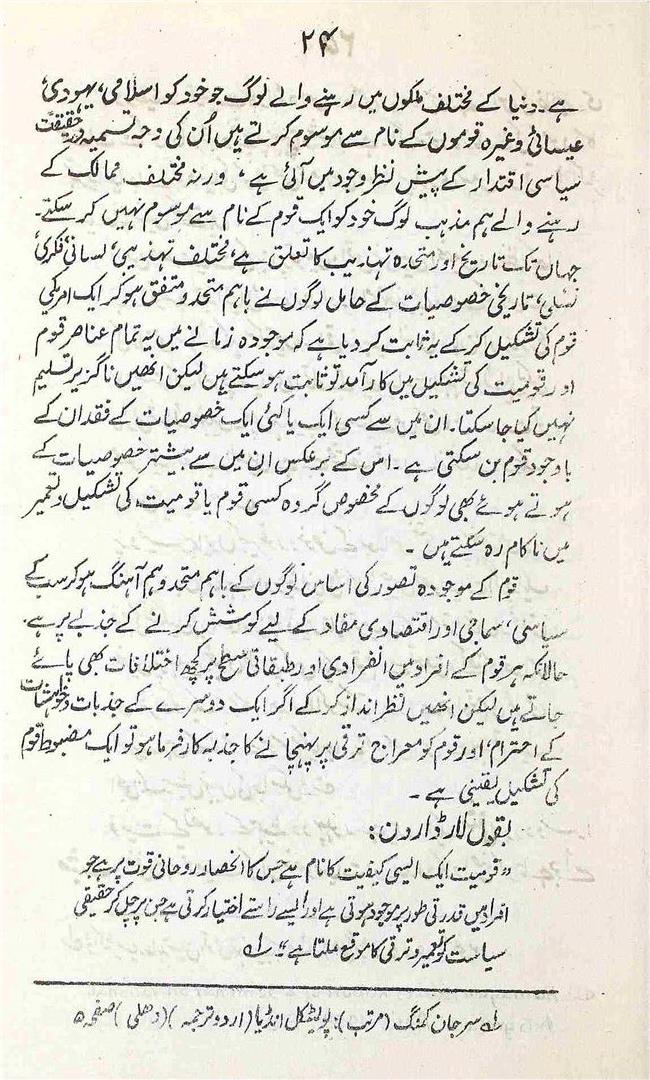 ۲۴
ہے۔ دنیا کے مختلف ملکوں میں رہنے والے لوگ جو خود کو اسلامی، یہودی،
عیسائی وغیرہ قوموں کے نام سے موسوم کرتے ہیں اُن کی وجہ تسمیہ در حقیقت
سیاسی اقتدار کے پیش نظر وجود میں آئی ہے، ورنہ مختلف ممالک کے
رہنے والے ہم مذہب لوگ خود کو ایک قوم کے نام سے موسوم نہیں کر سکتے۔
جہاں تک تاریخ اور متحدہ تہذیب کا تعلق ہے، مختلف تہذیبی، لسانی، فکری،
نسلی، تاریخی خصوصیات کے حامل لوگوں نے باہم متحد و متفق ہو کر ایک امریکی
قوم کی تشکیل کر کے یہ ثابت کر دیا ہے کہ موجودہ زمانے میں یہ تمام عناصر قوم
اور قومیت کی تشکیل میں کار آمد تو ثابت ہو سکتے ہیں لیکن انھیں ناگزیر تسلیم
نہیں کیا جا سکتا۔ ان میں سے کسی ایک یا کئی ایک خصوصیات کے فقدان کے
باوجود قوم بن سکتی ہے۔ اس کے برعکس اِن میں سے بیشتر خصوصیات کے
ہوتے ہوئے بھی لوگوں کے مخصوص گروہ کسی قوم یا قومیت کی تشکیل و تعمیر
میں ناکام رہ سکتے ہیں۔
قوم کے موجودہ تصور کی اساس لوگوں کے باہم متحد و ہم آہنگ ہو کر سب کے
سیاسی، سماجی اور اقتصادی مفاد کے لیے کوشش کرنے کے جذبے پر ہے۔
حالانکہ ہر قوم کے افراد میں انفرادی اور طبقاتی سطح پر کچھ اختلافات بھی پائے
جاتے ہیں لیکن انھیں نظر انداز کر کے اگر ایک دوسرے کے جذبات و خواہشات
کے احترام، اور قوم کو معراج ترقی پر پہنچانے کا جذبہ کار فرما ہو تو ایک مضبوط قوم
کی تشکیل یقینی ہے۔
بقول لارڈ اردن:
"قومیت ایک ایسی کیفیت کا نام ہے جس کا انحصار روحانی قوت پر ہے جو
افراد میں قدرتی طور پر موجود ہوتی ہے اور ایسے راستے اختیار کرتی ہے جن پر چل کر حقیقی
سیاست کو تعمیر و ترقی کا موقع ملتا ہے"۔ ۱؎
۱؎ سر جان کمنگ (مرتب): پولیٹکل انڈیا (اردو ترجمہ) (دھلی) صفحہ ۵